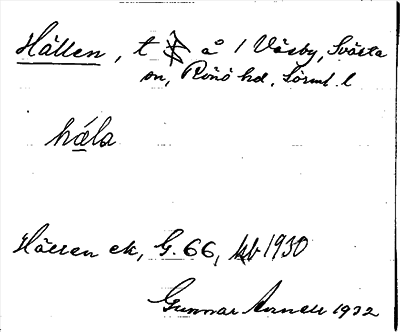 Hällen, t å 1 Väsby, Svärta
sn, Rönö hd, Sörml. l
håla
Hällen ek, G. 66, kb 1930
Gunnar Arnell 1932